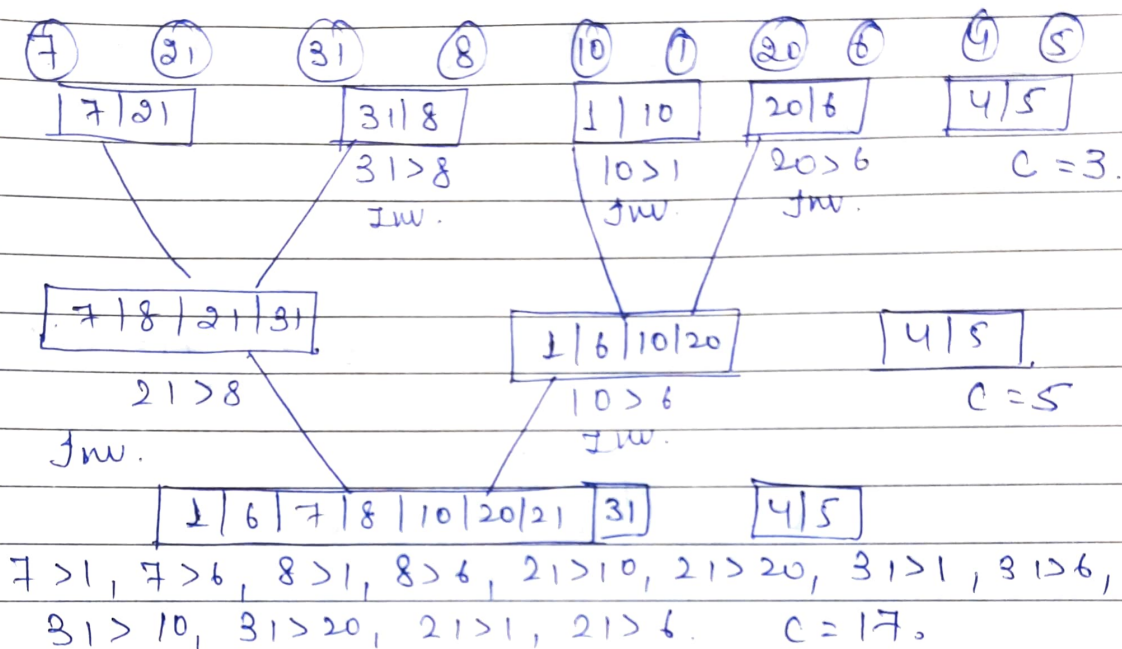 7 21 31 8 10 1 20 6 4 5
7|21 31|8 1|10 20|6 4|5
31>8 10>1 20>6 C=3.
Inv. Inv. Inv.
7|8|21|31 1|6|10|20 4|5
21>8 10>6 C=5
Inv. Inv.
1|6|7|8|10|20|21|31 4|5
7>1, 7>6, 8>1, 8>6, 21>10, 21>20, 31>1, 31>6,
31>10, 31>20, 21>1, 21>6. C=17.